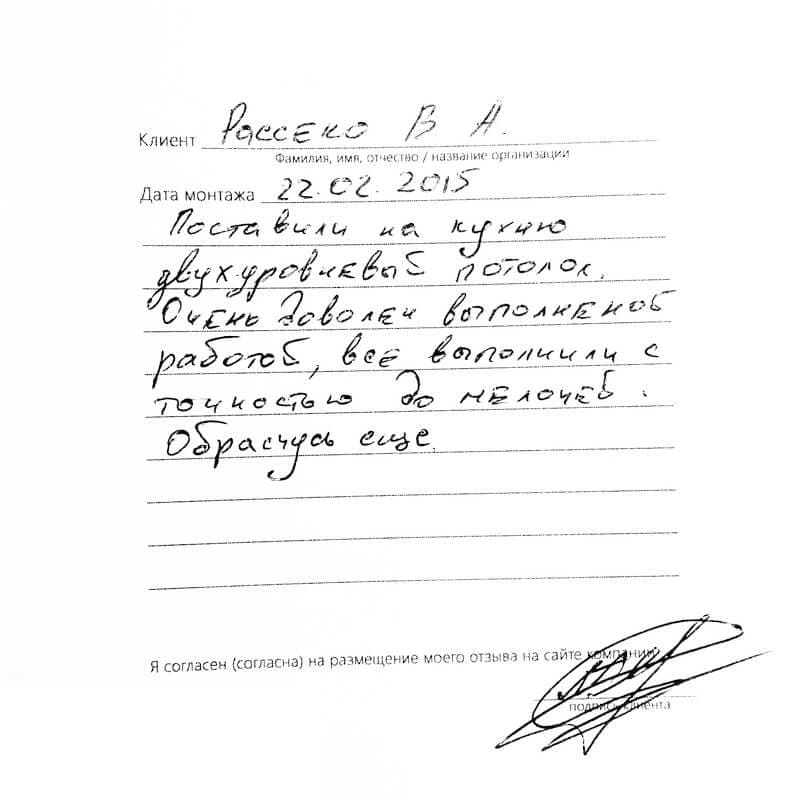 Клиент Рассеко В А.
Фамилия, имя, отчество / название организации
Дата монтажа 22.02.2015
Поставили на кухню
двухуровневый потолок.
Очень доволен выполненой
работой, все выполнили с
точностью до мелочей.
Обращусь еще.
Я согласен (согласна) на размещение моего отзыва на сайте компании
подпись клиента